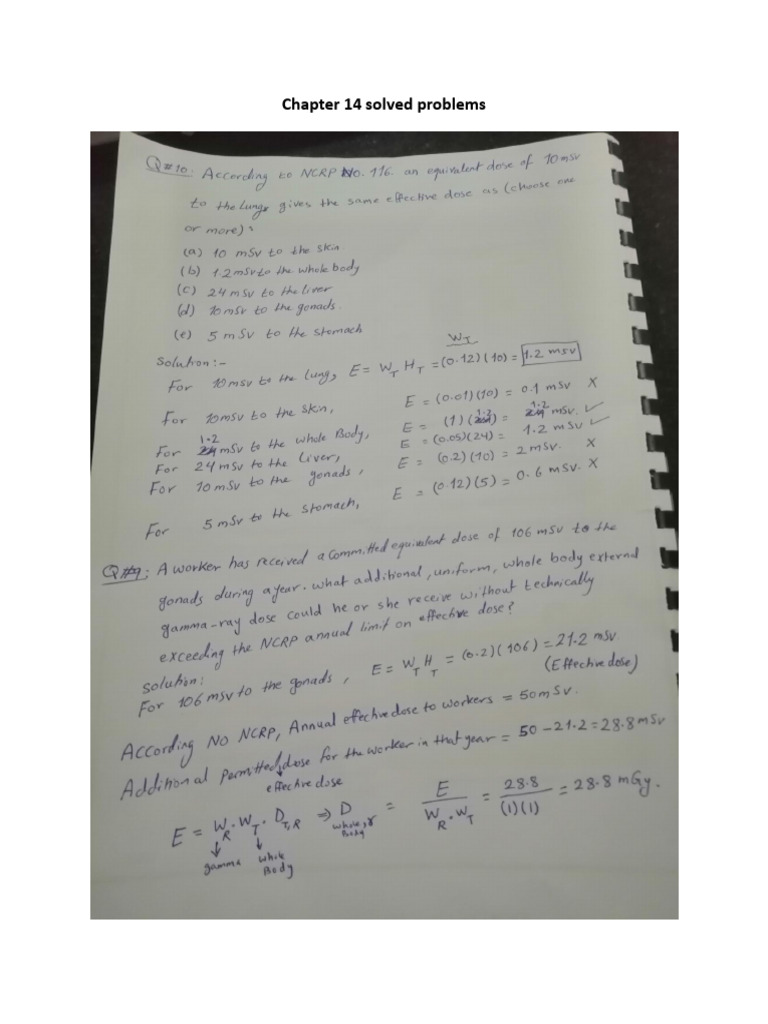 Chapter 14 solved problems
Q#10: According to NCRP No. 116. an equivalent dose of 10 mSv
to the lung, gives the same effective dose as (choose one
or more):
(a) 10 mSv to the skin
(b) 1.2 mSv to the whole body
(c) 24 mSv to the liver
(d) 10 mSv to the gonads.
(e) 5 mSv to the stomach
Solution:-
W_T
For 10 mSv to the lung, E = W_T H_T = (0.12)(10) = 1.2 mSv
For 10 mSv to the skin, E = (0.01)(10) = 0.1 mSv X
For 1.2 mSv to the whole Body, E = (1)(1.2) = 1.2 mSv. ✓
For 24 mSv to the liver, E = (0.05)(24) = 1.2 mSv ✓
For 10 mSv to the gonads, E = (0.2)(10) = 2 mSv. X
For 5 mSv to the stomach, E = (0.12)(5) = 0.6 mSv. X
Q#9: A worker has received a committed equivalent dose of 106 mSv to the
gonads during a year. what additional, uniform, whole body external
gamma-ray dose could he or she receive without technically
exceeding the NCRP annual limit on effective dose?
Solution:
For 106 mSv to the gonads, E = W_T H_T = (0.2)(106) = 21.2 mSv.
(Effective dose)
According NO NCRP, Annual effective dose to workers = 50 mSv.
Additional permitted dose for the worker in that year = 50 - 21.2 = 28.8 mSv
effective dose
E = W_R . W_T . D_T,R ⇒ D whole,γ Body = E / W_R . W_T = 28.8 / (1)(1) = 28.8 mGy.
gamma whole
Body